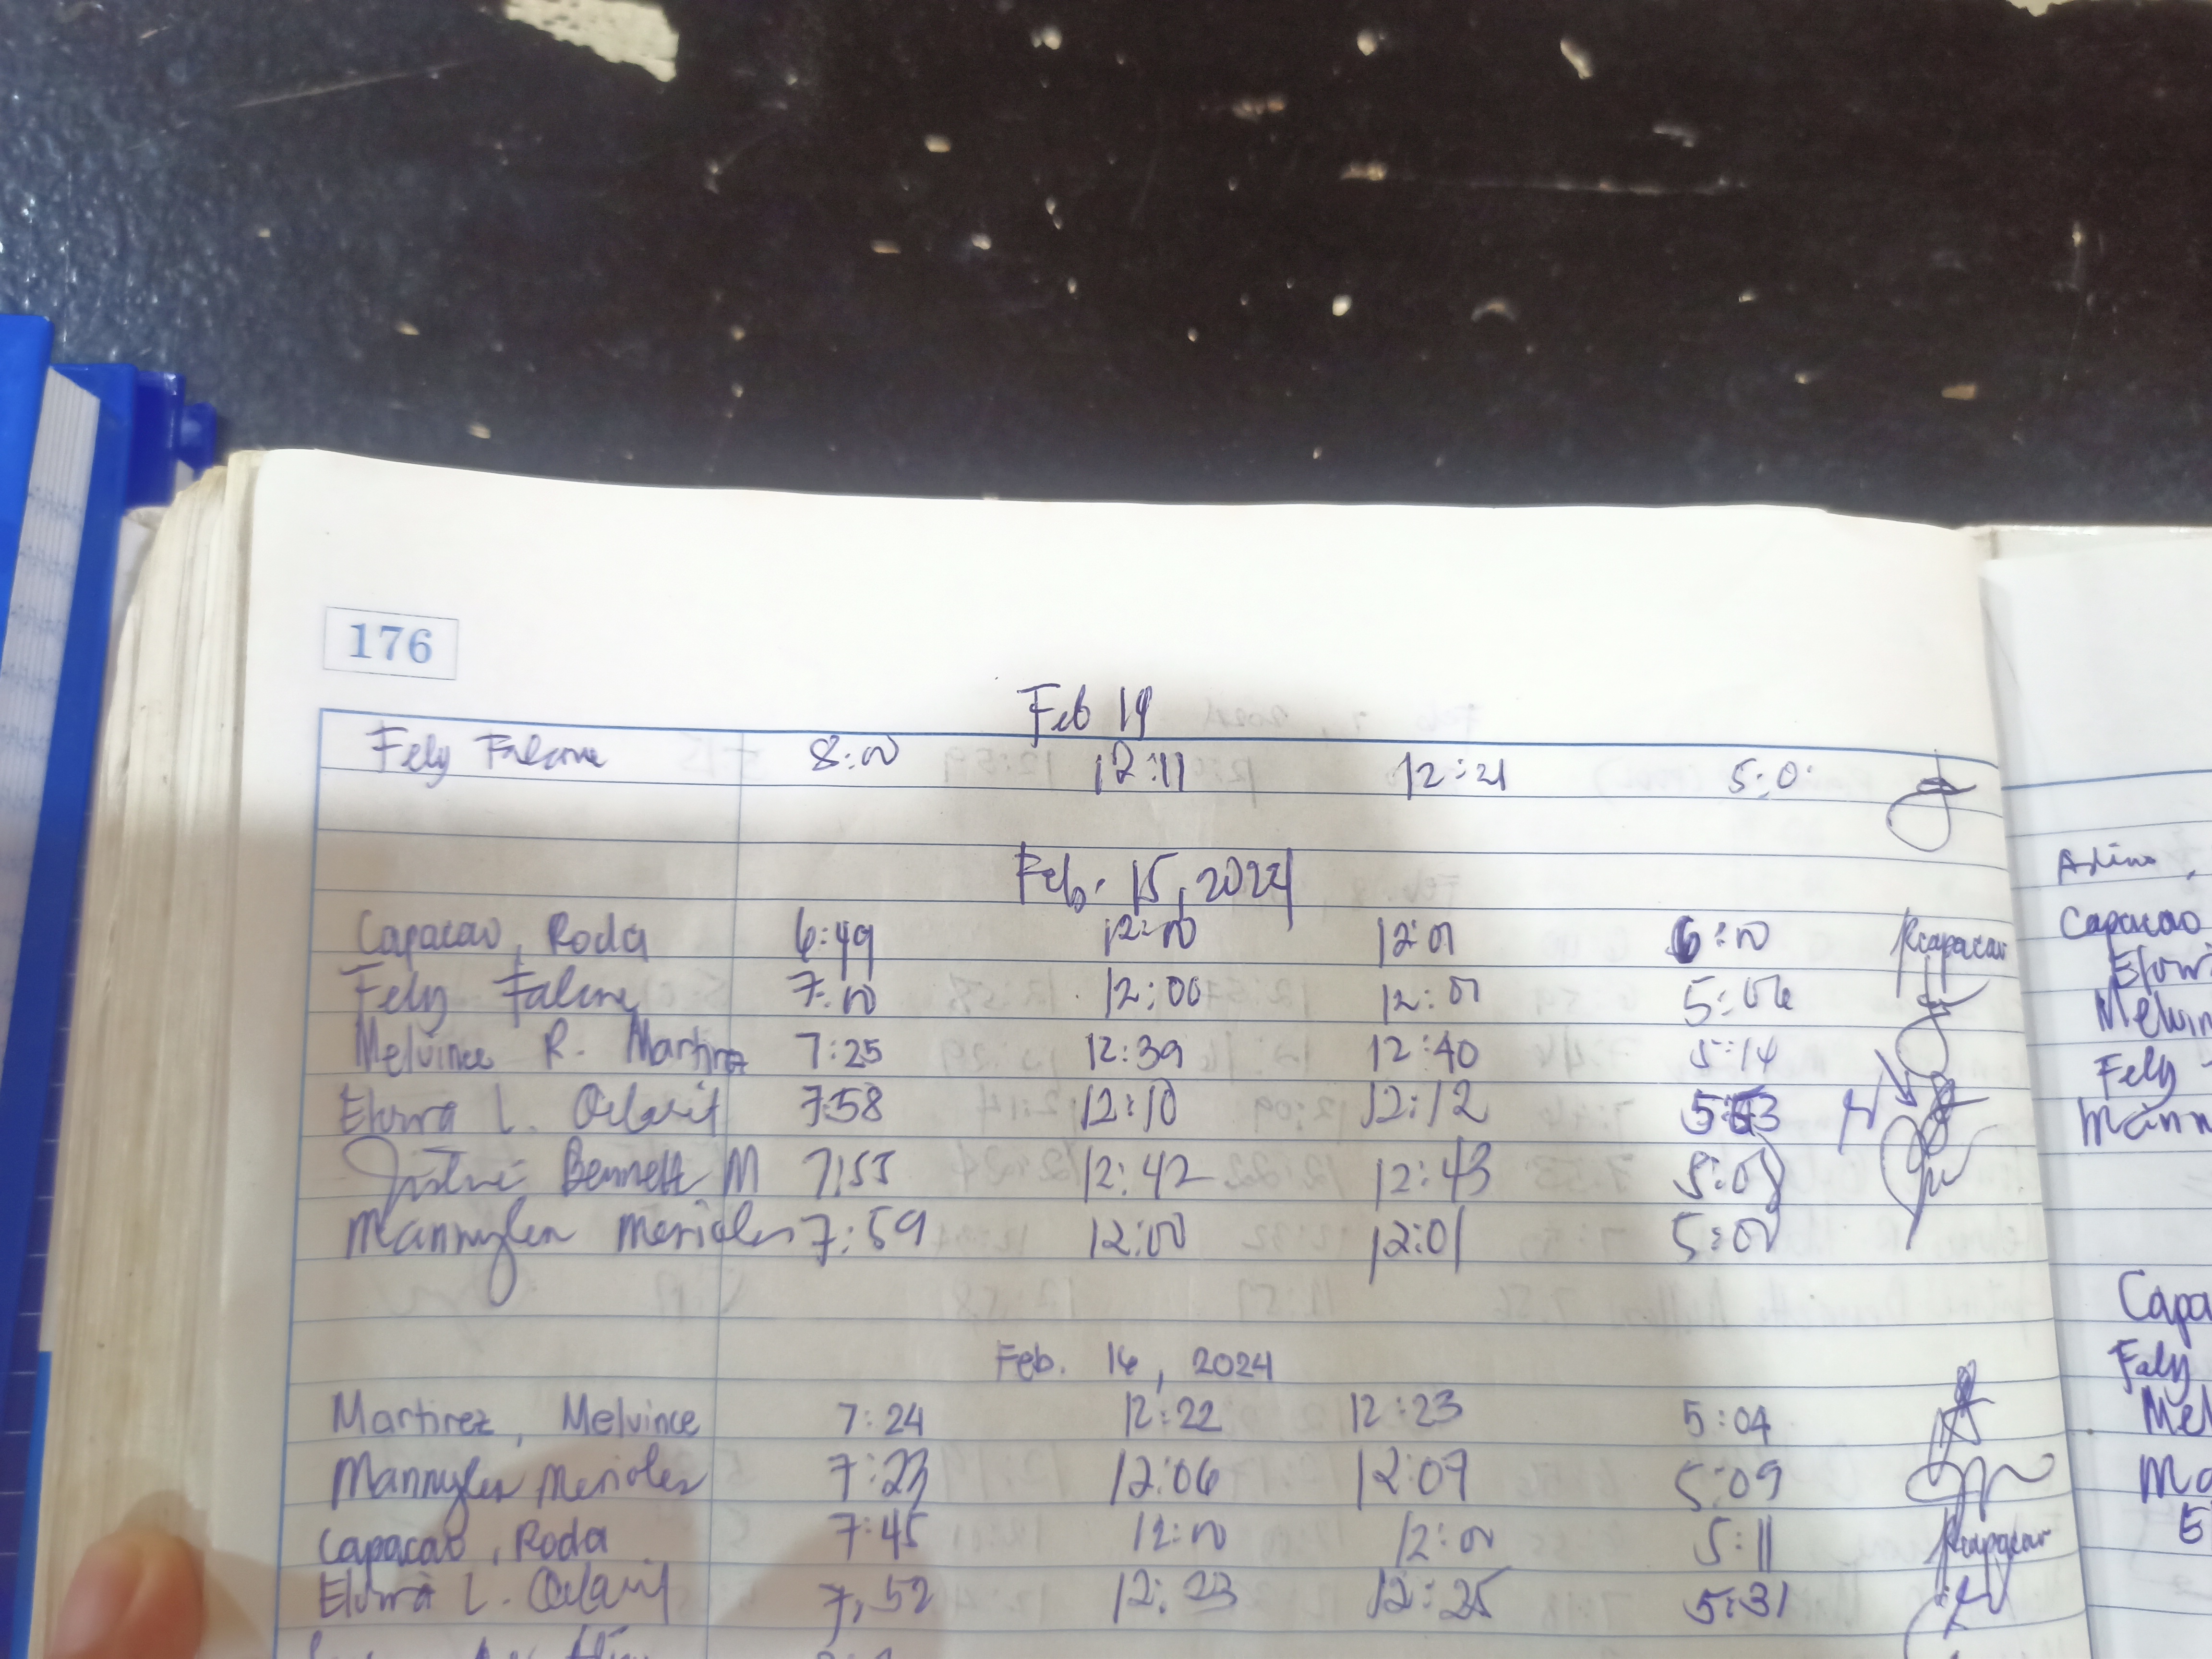 176
Feb 14
Fely Falcone 8:00 12:11 12:21 5:0
Feb. 15, 2024
Capacao, Roda 6:49 12:00 12:01 6:00 Rcapacao
Fely Falcone 7:00 12:00 12:01 5:06
Melvince R. Martinez 7:25 12:39 12:40 5:14
L. 7:58 12:10 12:12
Bennett M 7:55 12:42 12:43 5:05
Mannylen Merioles 7:59 12:00 12:01 5:00
Feb. 16, 2024
Martinez, Melvince 7:24 12:22 12:23 5:04
Mannylen Merioles 7:23 12:06 12:07 5:09
Capacao, Roda 7:45 12:00 12:01 5:11 Rcapacao
L. 7:52 12:23 12:25 5:31
Capacao
Melvin
Fely
Mann
Capa
Fely
Mel
Ma
E